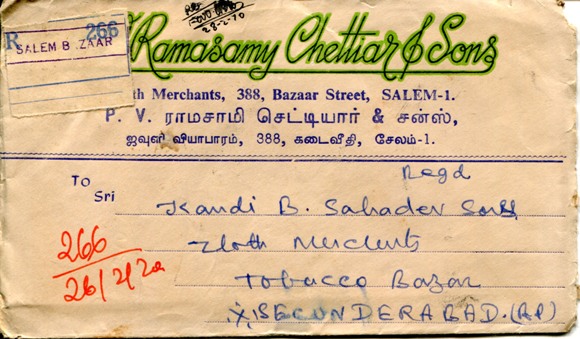 28-2-70
R 266
SALEM B ZAAR
Ramasamy Chettiar & Sons
th Merchants, 388, Bazaar Street, SALEM-1.
P. V. ராமசாமி செட்டியார் & சன்ஸ்,
ஜவுளி வியாபாரம், 388, கடைவீதி, சேலம்-1.
Regd
To
Sri
Kandi B. Sahadev Sons
Cloth Merchants
266
26/2/70
Tobacco Bazar
SECUNDERABAD. (AP)